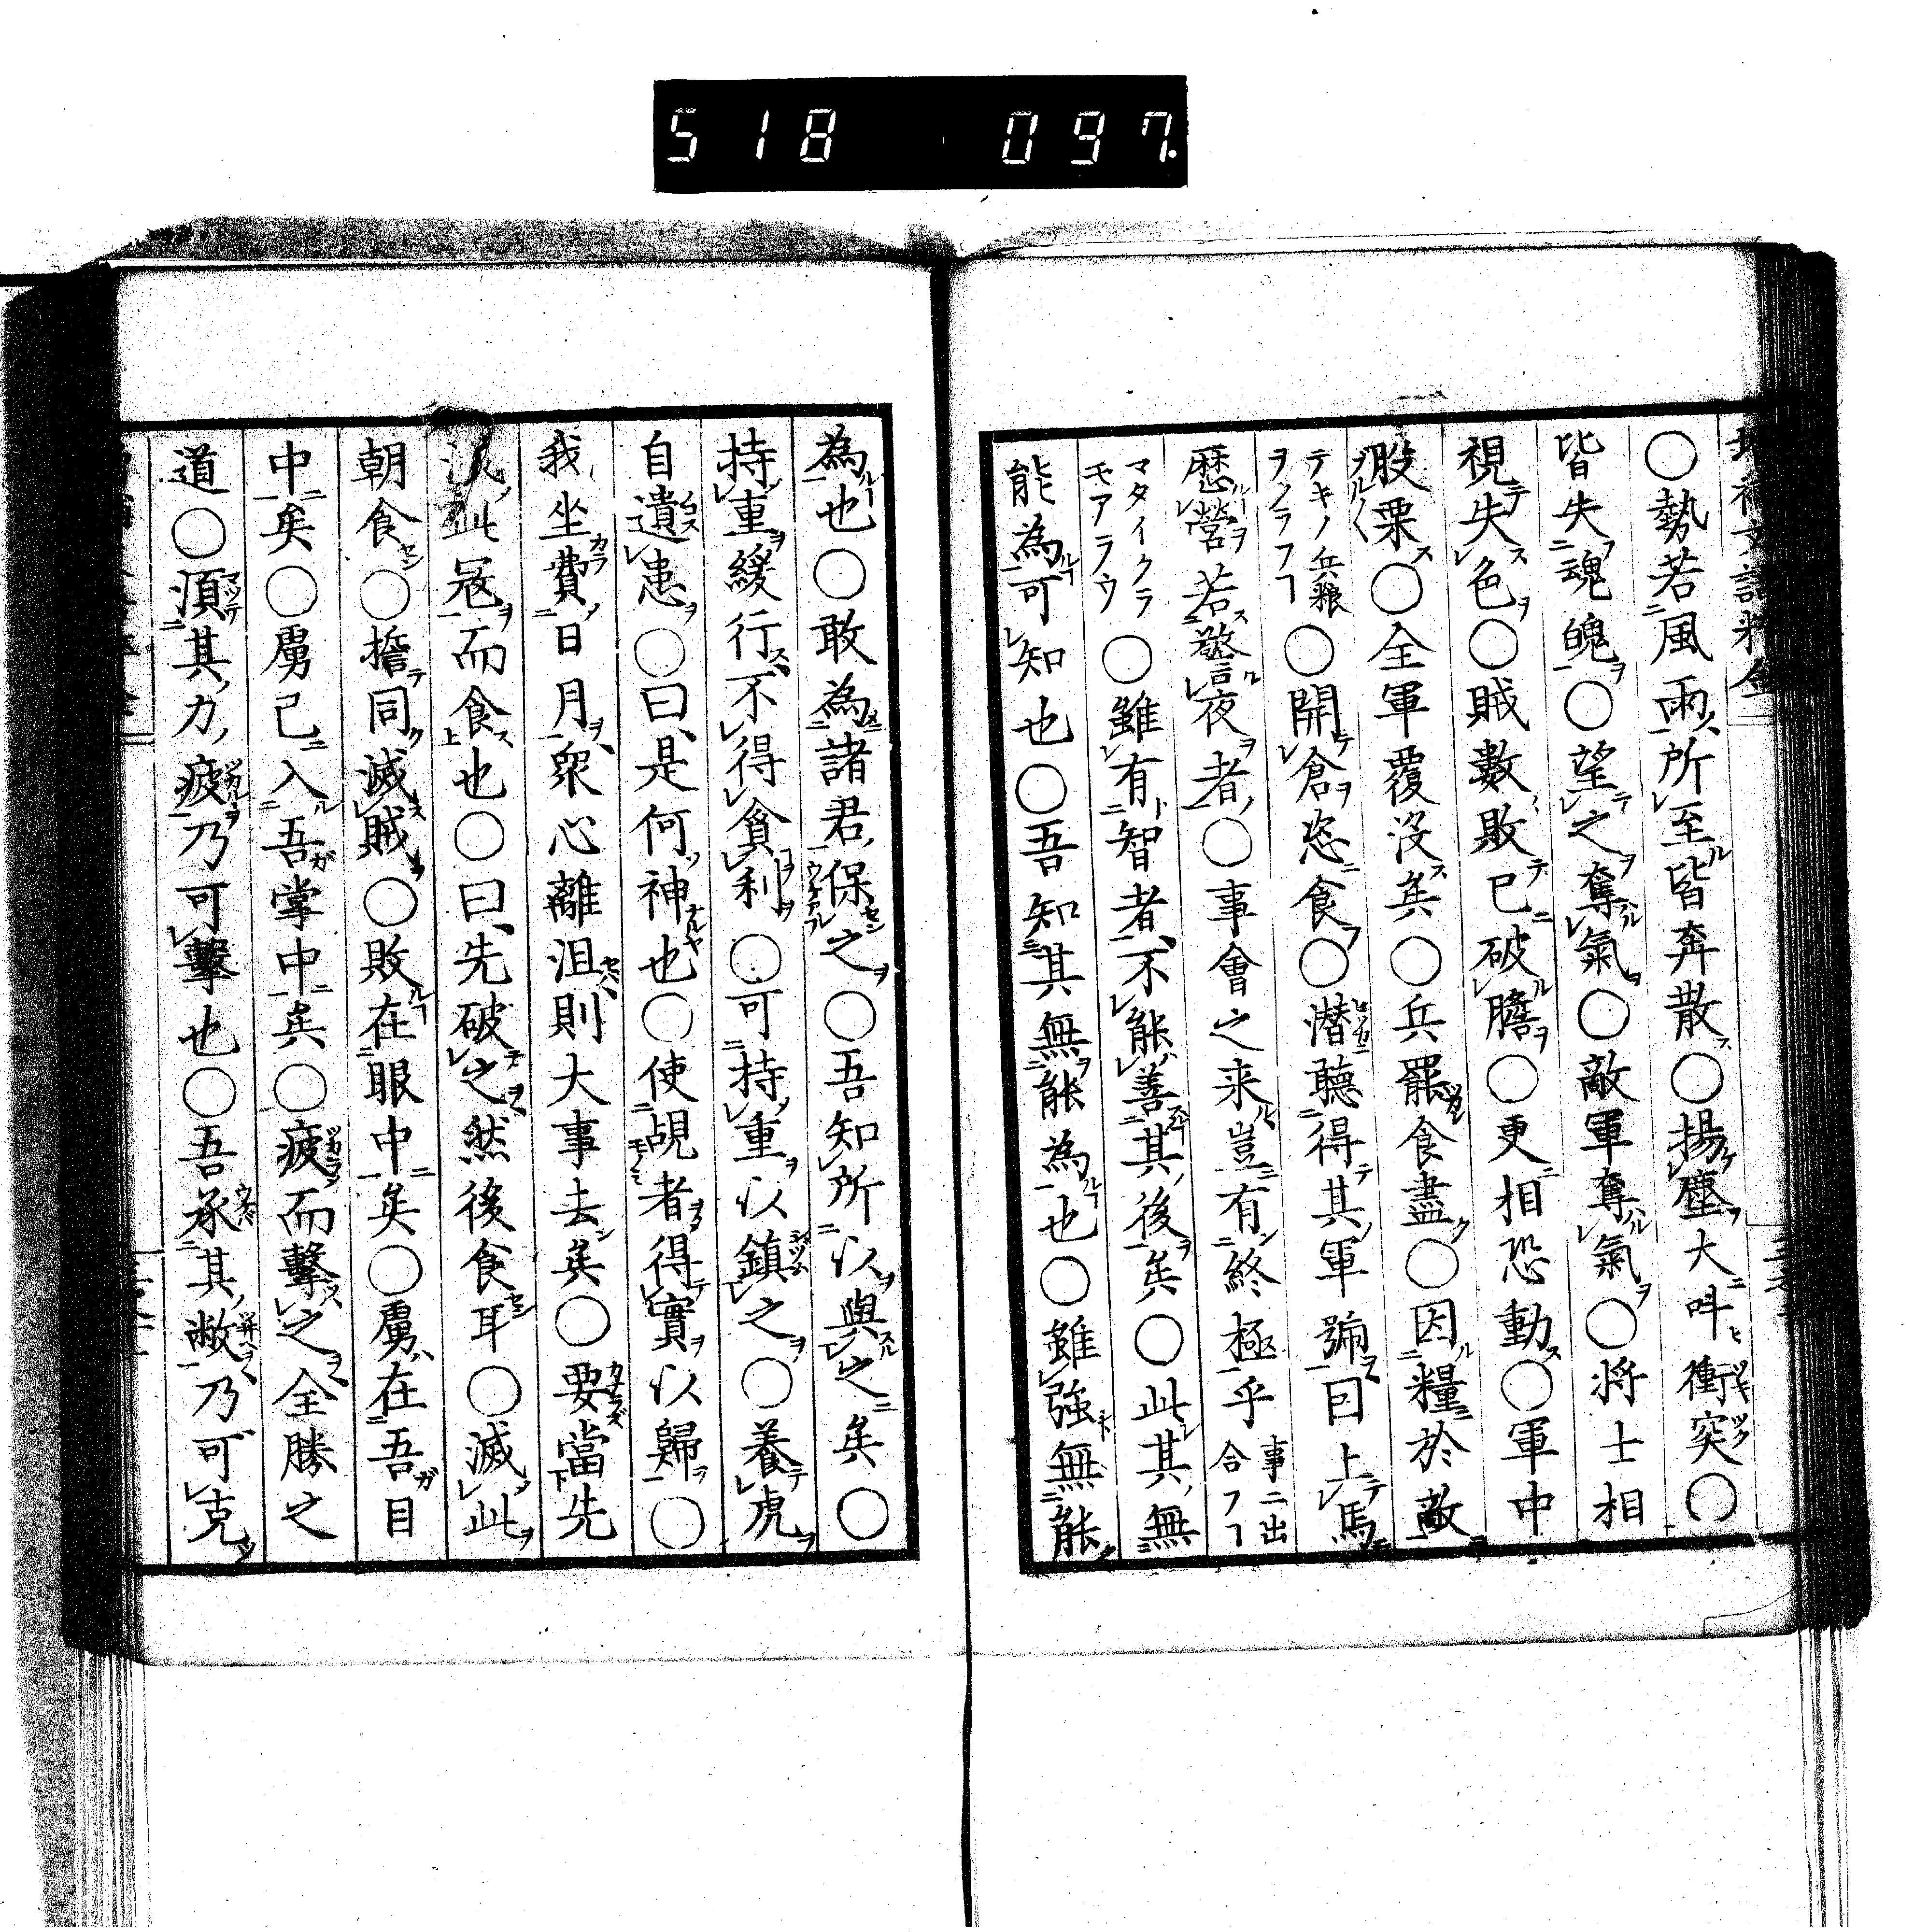 518 097
○勢若風雨所至皆奔散○揚塵大呌衝突○
皆失魂魄○望之奪氣○敵軍奪氣○將士相
視失色○賊數敗已破膽○更相恐動○軍中
股栗○全軍覆沒矣○兵罷食盡○因糧於敵
テキノ兵粮ヲノラフ○開倉恣食○潜聽得其軍號曰上馬
歷營若警夜者○事會之来豈有終極乎事ニ出合フ
マタイクラモアラウ○雖有智者不能善其後矣○此其無
能為可知也○吾知其無能為也○雖強無能
為也○敢為諸君保之○吾知所以與之矣○
持重緩行不得貪利○可持重以鎮之○養虎
自遺患○曰是何神也○使覘者得實以歸○
我坐費日月衆心離沮則大事去矣○要當先
此冦而食也○曰先破之然後食耳○滅此
朝食○擔同滅賊○敗在眼中矣○虜在吾目
中矣○虜已入吾掌中矣○疲而擊之全勝之
道○須其力疲乃可擊也○吾承其敝乃可克